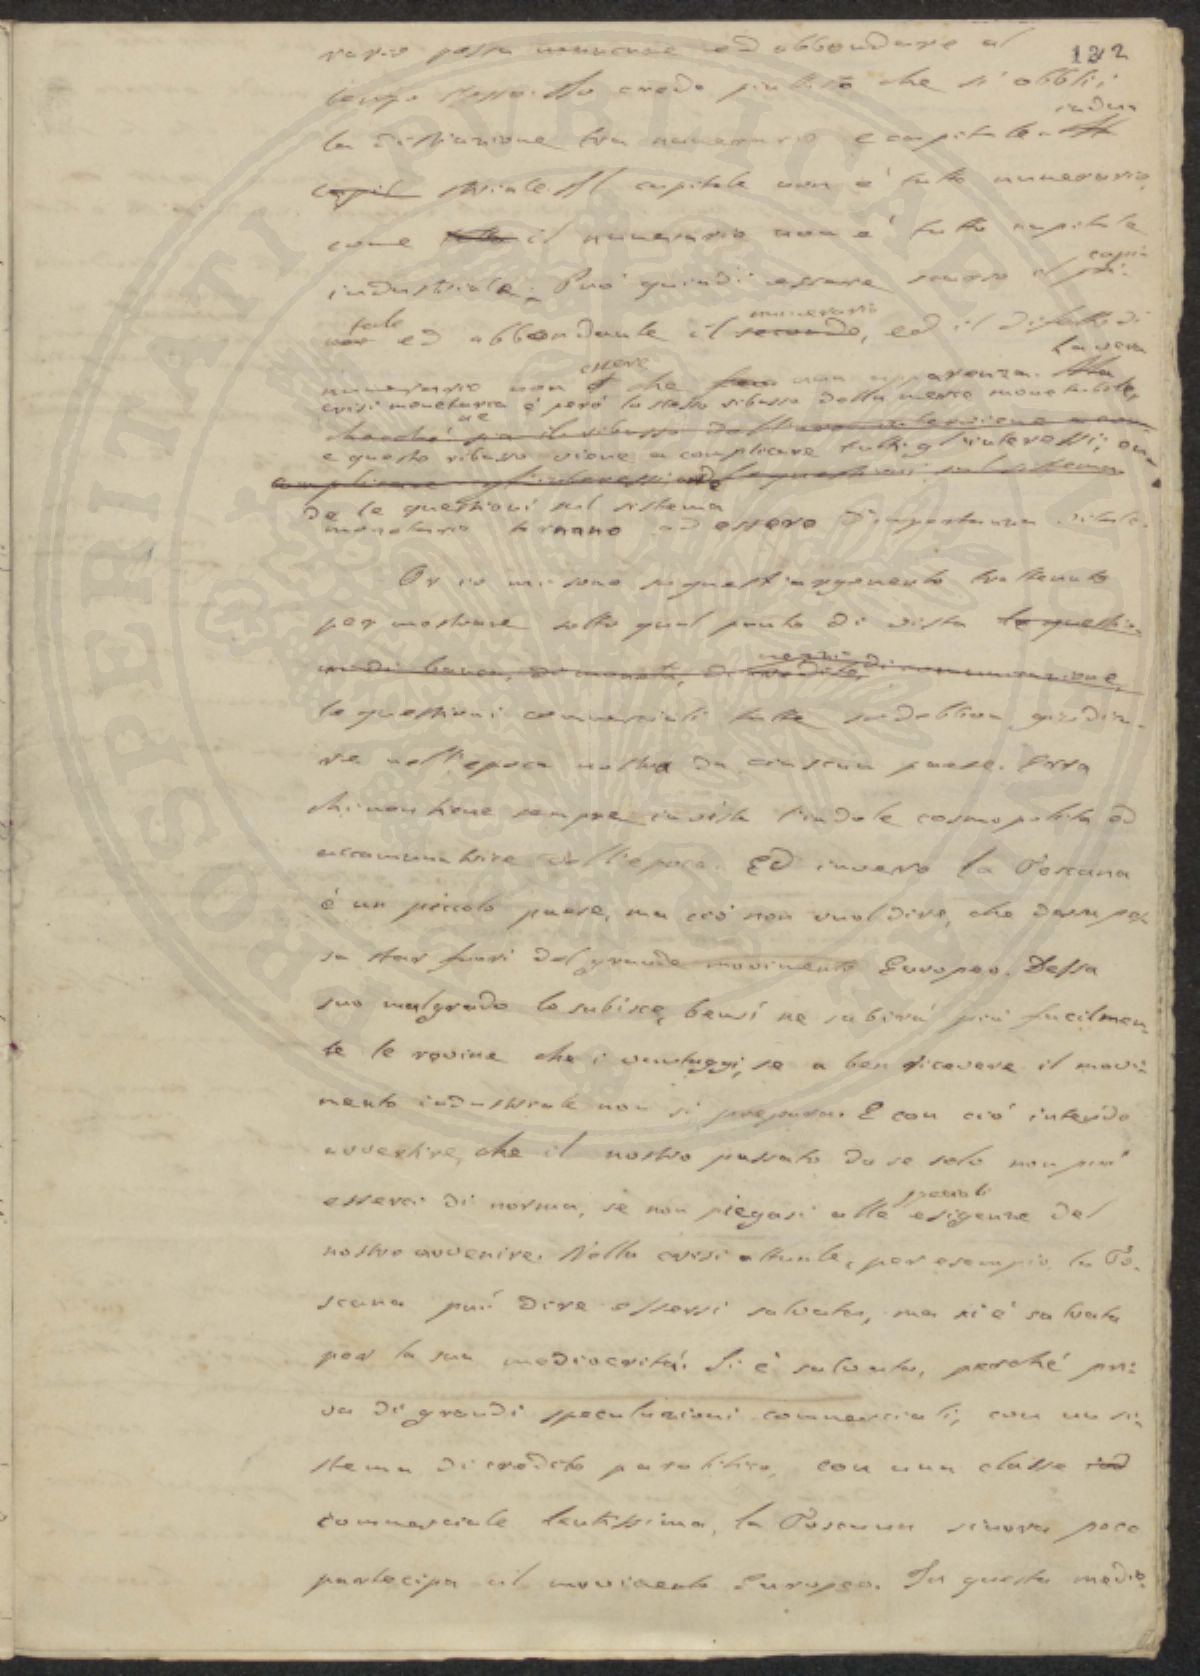 132
rario possa mancare ed abbondare al
tempo stesso. Io credo piuttosto che si obblii
la distinzione tra numerario e capitale indu-
capit striale. Il capitale non è tutto numerario,
come tutto il numerario non è tutto capitale
industriale. Può quindi essere scarso il capi-
tale ed abbondante il secondo, numerario ed il difetto di
numerario non è essere che una apparenza. La vera
crisi monetaria è però lo stesso ribasso della merce monetabile,
e questo ribasso viene a complicare tutti gl'interessi; on-
complicare gl'interessi onde le questioni sul sistema
de le questioni sul sistema
monetario tornano ad essere d'importanza vitale.
Or io mi sono su quest'argomento trattenuto
per mostrare sotto qual punto di vista le questio-
ni di banca, di moneta, di credito, mezzi di comunicazione,
le questioni commerciali tutte si debbon giudica-
re nell'epoca nostra da ciascun paese. Erra
chi non tiene sempre in vista l'indole cosmopolita ed
accomunatrice dell'epoca. Ed invero la Toscana
è un piccolo paese, ma ciò non vuol dire, che dessa pos-
sa star fuori del grande movimento Europeo. Dessa
suo malgrado lo subisce, bensì ne subirà più facilmen-
te le rovine che i vantaggi, se a ben ricevere il movi-
mento industriale non si prepara. E con ciò intendo
avvertire, che il nostro passato da se solo non può
esserci di norma, se non piegasi alle speciali esigenze del
nostro avvenire. Nella crisi attuale, per esempio, la To-
scana può dire essersi salvata, ma si è salvata
per la sua mediocrità. Si è salvata, perché pri-
va di grandi speculazioni commerciali, con un si-
stema di credito paralitico, con una classe ind
commerciale lentissima, la Toscana sinora poco
partecipa al movimento Europeo. In questa medio-
PROSPERITATI PVBLICAE